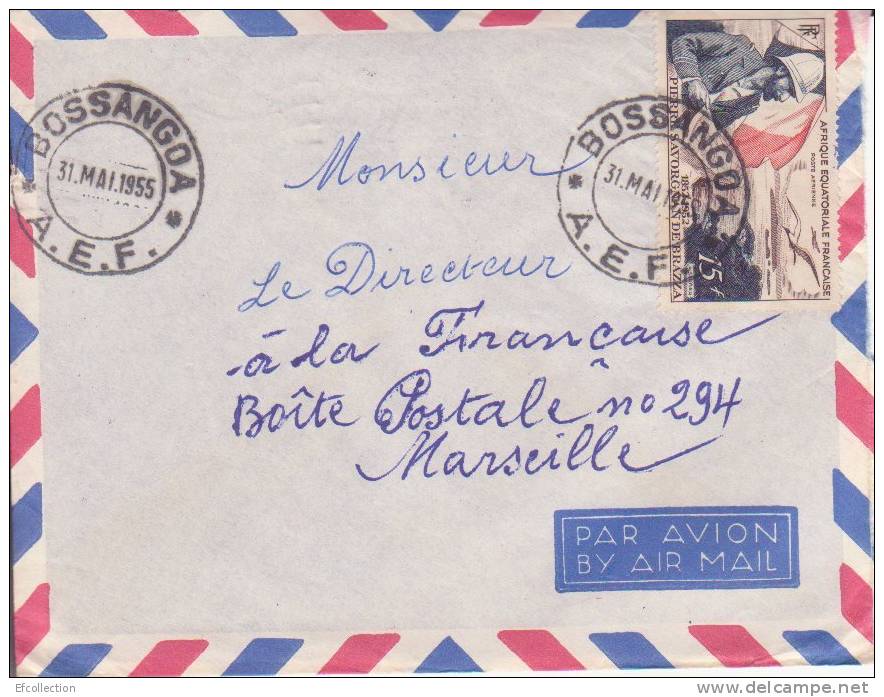 BOSSANGOA
31.MAI.1955
A.E.F.
BOSSANGOA
31.MAI.19
A.E.F.
RF
AFRIQUE EQUATORIALE FRANÇAISE
POSTE AERIENNE
PIERRE SAVORGNAN DE BRAZZA
15f
Monsieur
Le Directeur
à la Française
Boîte Postale no 294
Marseille
PAR AVION
BY AIR MAIL
Efcollection
delcampe.net